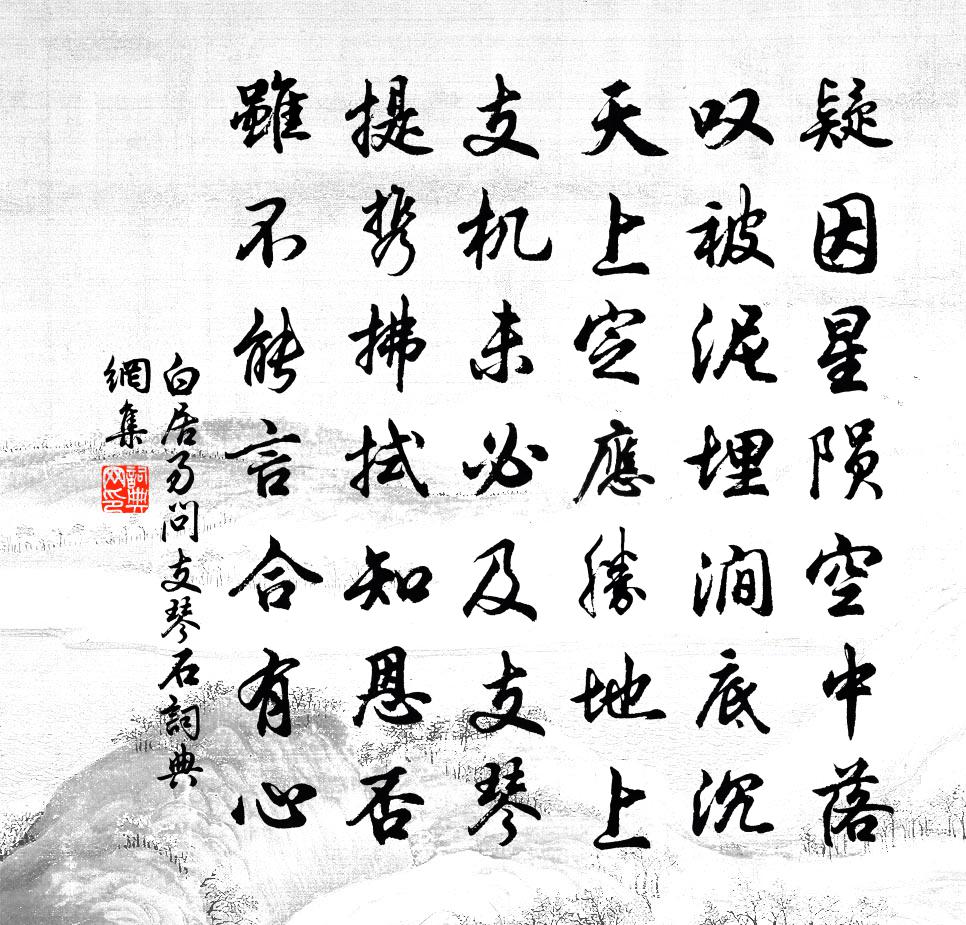 疑因星陨空中落
叹被泥埋澗底沉
天上定應勝地上
支机未必及支琴
提携拂拭知恩否
雖不能言合有心
白居易問支琴石詞典
網集
詞典网印